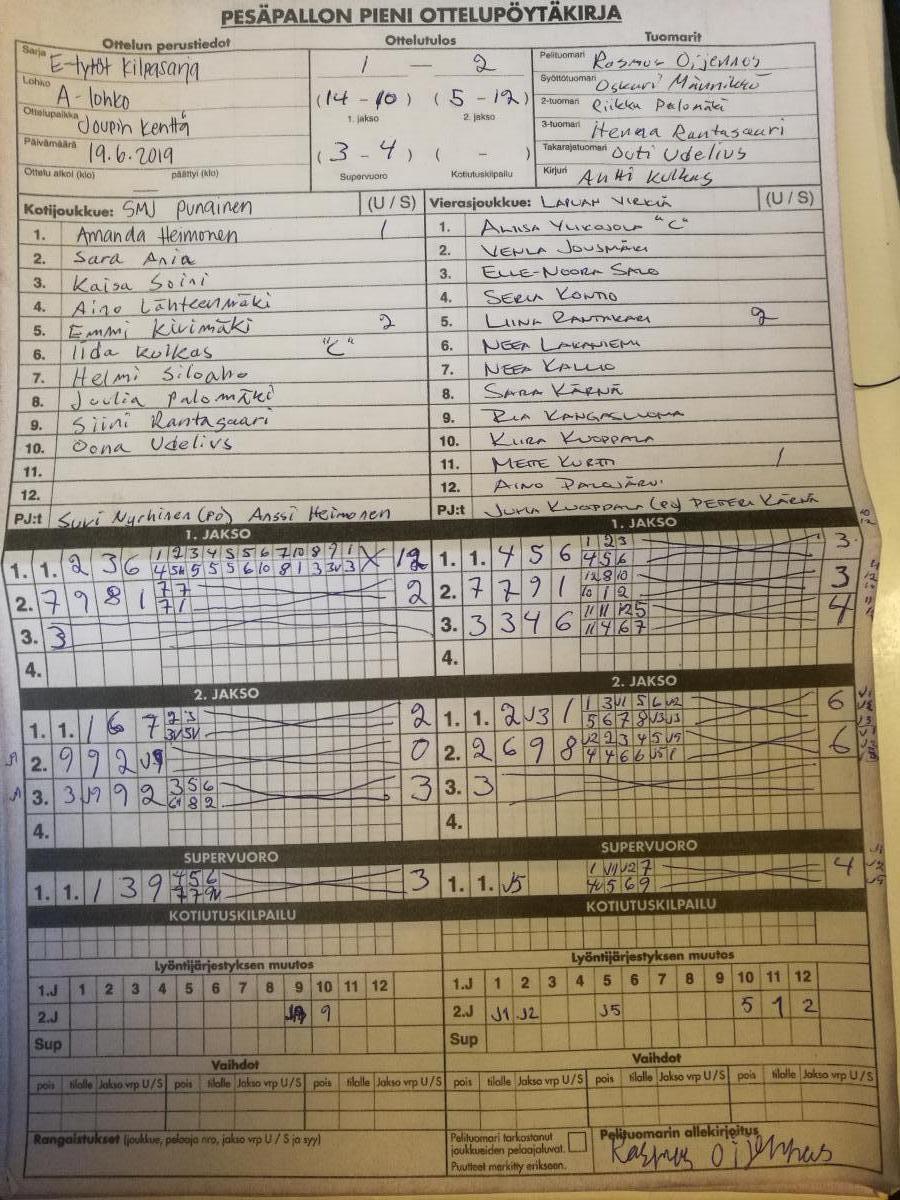 PESÄPALLON PIENI OTTELUPÖYTÄKIRJA
Ottelun perustiedot
Ottelutulos
Tuomarit
Sarja E-tytöt kilpasarja
1 — 2
Pelituomari Rasmus Oijennus
Lohko A-lohko
(14 - 10) (5 - 12)
1. jakso 2. jakso
Syöttötuomari Oskari Männikkö
Ottelupaikka Joupin kenttä
2-tuomari Riikka Palomäki
3-tuomari Henna Rantasaari
Päivämäärä 19.6.2019
(3 - 4) ( - )
Takarajatuomari Outi Udelius
Ottelu alkoi (klo) — päättyi (klo)
Supervuoro Kotiutuskilpailu
Kirjuri Antti Kulkas
Kotijoukkue: SMJ Punainen (U / S)
Vierasjoukkue: LAPUAN VIRKIÄ (U / S)
1. Amanda Heimonen 1
2. Sara Ania
3. Kaisa Soini
4. Aino Lähteenmäki
5. Emmi Kivimäki 2
6. Iida Kulkas "C"
7. Helmi Siloaho
8. Juulia Palomäki
9. Siini Rantasaari
10. Oona Udelius
11.
12.
PJ:t Suvi Nyrhinen (PÖ) Anssi Heimonen
1. "C"
2. VENLA JOUSMÄKI
3. ELLE-NOORA SALO
4. KONTIO
5. LIINA RANTAKARI 2
6. NEEA LAKANIEMI
7. NEEA KALLIO
8. SARA KÄRNÄ
9. RIA KANGASLUOMA
10. KIIRA KUOPPALA
11. METTE KURTTI 1
12. AINO PALOJÄRVI
PJ:t JUHA KUOPPALA (PÖ) PETERI KÄRNÄ
1. JAKSO
1. 1. 2 3 6 12
2. 7 9 8 1 2
3. 3
4.
1. JAKSO
1. 1. 4 5 6 1 2 3 3
4 5 6
2. 7 7 9 1 12 8 10 3
10 1 2
3. 3 3 4 6 11 11 12 5 4
11 4 6 7
4.
2. JAKSO
1. 1. 1 6 7 2
2. 9 9 2 0
3. 3 J9 9 2 3 5 6 3
4.
2. JAKSO
1. 1. 2 J3 1 6
2. 2 6 9 8 6
3. 3
4.
SUPERVUORO
1. 1. 1 3 9 4 5 6 3
SUPERVUORO
1. 1. J5 4
KOTIUTUSKILPAILU
KOTIUTUSKILPAILU
Lyöntijärjestyksen muutos
1.J 1 2 3 4 5 6 7 8 9 10 11 12
2.J 9
Sup
Lyöntijärjestyksen muutos
1.J 1 2 3 4 5 6 7 8 9 10 11 12
2.J J1 J2 J5 5 1 2
Sup
Vaihdot
pois tilalle Jakso vrp U / S pois tilalle Jakso vrp U / S pois tilalle Jakso vrp U / S
Vaihdot
pois tilalle Jakso vrp U / S pois tilalle Jakso vrp U / S pois tilalle Jakso vrp U / S
Rangaistukset (joukkue, pelaaja nro, jakso vrp U / S ja syy)
Pelituomari tarkastanut
joukkueiden pelaajaluvat.
Puutteet merkitty erikseen.
Pelituomarin allekirjoitus
Rasmus Oijennus